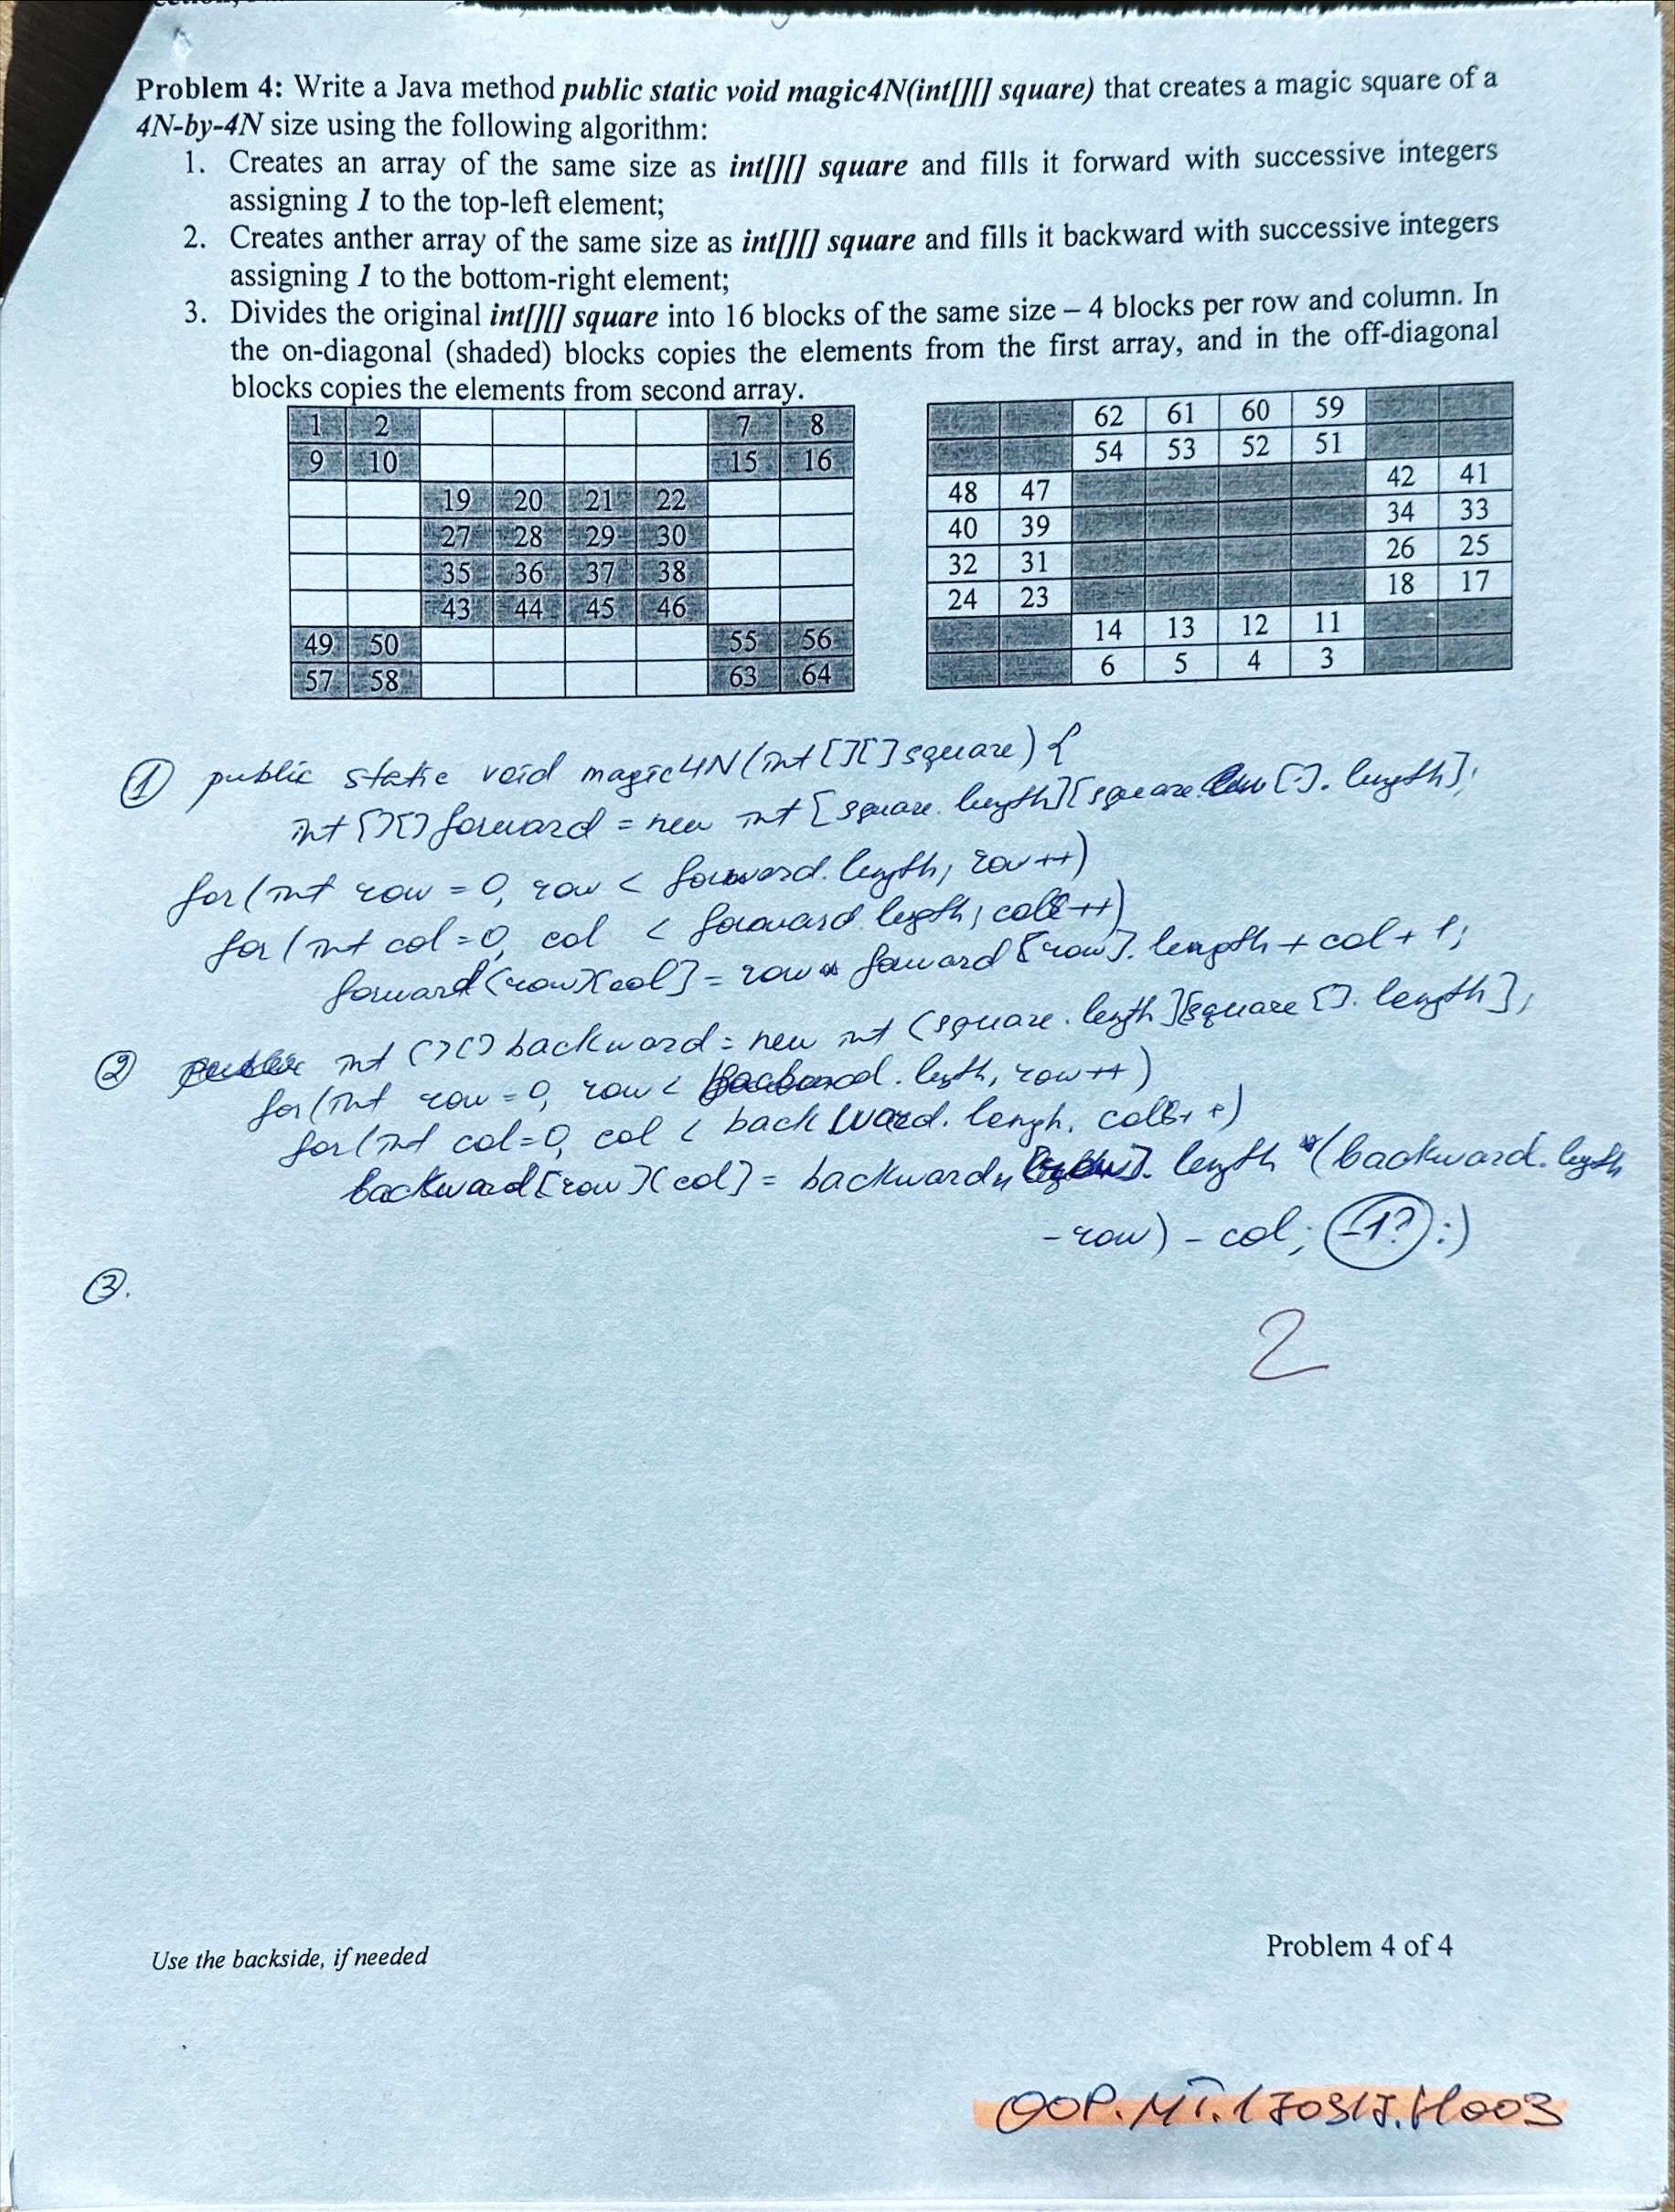 Problem 4: Write a Java method public static void magic4N(int[][] square) that creates a magic square of a
4N-by-4N size using the following algorithm:
1. Creates an array of the same size as int[][] square and fills it forward with successive integers
assigning 1 to the top-left element;
2. Creates anther array of the same size as int[][] square and fills it backward with successive integers
assigning 1 to the bottom-right element;
3. Divides the original int[][] square into 16 blocks of the same size – 4 blocks per row and column. In
the on-diagonal (shaded) blocks copies the elements from the first array, and in the off-diagonal
blocks copies the elements from second array.
1 2 7 8
9 10 15 16
19 20 21 22
27 28 29 30
35 36 37 38
43 44 45 46
49 50 55 56
57 58 63 64
62 61 60 59
54 53 52 51
48 47 42 41
40 39 34 33
32 31 26 25
24 23 18 17
14 13 12 11
6 5 4 3
① public static void magic4N(int[][] square) {
int [][] forward = new int [square.length][square [].length];
for (int row = 0, row < forward.length; row++)
for (int col = 0, col < forward.legth; col++)
forward[row][col] = row * forward [row].length + col + 1;
② int [][] backward = new int [square.length][square [].length];
for (int row = 0, row < row++)
for (int col = 0, col < backward.lengh, col++)
backward[row][col] = backward .length * (backward.legth
- row) - col; -1? :)
③.
2
Use the backside, if needed
Problem 4 of 4
OOP.MT.170317.H003